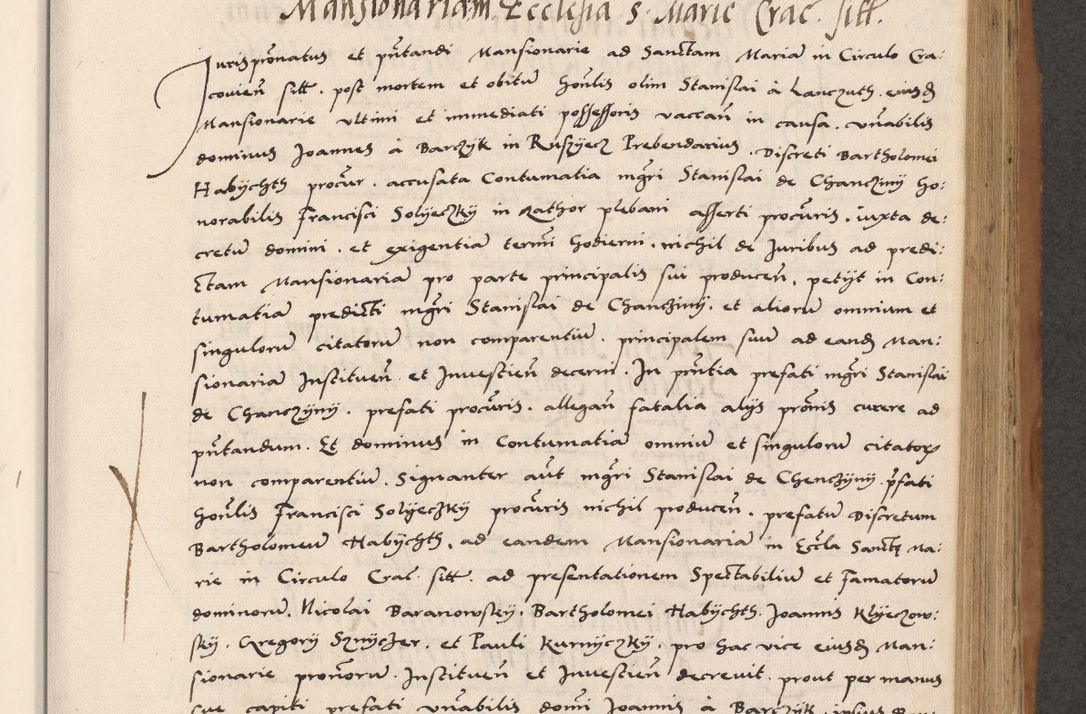 Mansionariam Ecclesia s. Marie Crac. sitt.
Jurispronatus et pntandi Mansionarie ad Sanctam Mariã in Circulo Cra:
covien̄ sitt. post mortem et obitũ honlis olim Stanislai à Lanczuth. eiusd
Mansionarie ultimi et immediati possessoris vaccan̄ in causa. vnabilis
dominus Joannes à Barczyk in Ruszyecz Prebendarius. Discreti Bartholomei
Habychth procur. accusata Contumatia mgri Stanislai de Chancziny ho:
norabilis Francisci Solyeczky in Rathor plebani asserti procuris. iuxta de:
cretũ domini. et exigentiã termi hodierni. nichil de Juribus ad predi:
ctam Mansionariã pro parte principalis sui producen̄, petijt in Con:
tumatiã predicti mgri Stanislai de Chancziny. et aliorũ omnium et
singulorũ citatorũ non comparentiũ. principalem suũ ad eand Man:
sionariã Instituen̄. et Investien̄ decerni. In pntia prefati mgri Stanislai
de Chanczyny. prefati procuris. allegan̄ fatalia alijs pronis currere ad
pntandum. Et dominus in Contumatiã omniũ et singulorũ citatorꝝ
non comparentiũ. Signanter aut mgri Stanislai de Chenczyny. pfati
honlis Francisci Solyeczky procuris nichil producen̄. prefatũ Discretum
Bartholomeũ Habychth, ad eandem Mansionariã in Eccla Sanctę Ma:
rie in Circulo Crac. sitt. ad presentationem Spectabiliũ et Famatorũ
dominorũ. Nicolai Baranowsky. Bartholomei Habychth. Joannis Klyeczow:
sky. Gregorij Sznyczer. et Pauli Kurnyczky. pro hac vice eiusd Man:
sionarie pronorũ. Instituen̄ et Investien̄ decrevit. prout per manus
sue capiti prefati vnabilis domi Joannis à Barczyk. ipsius